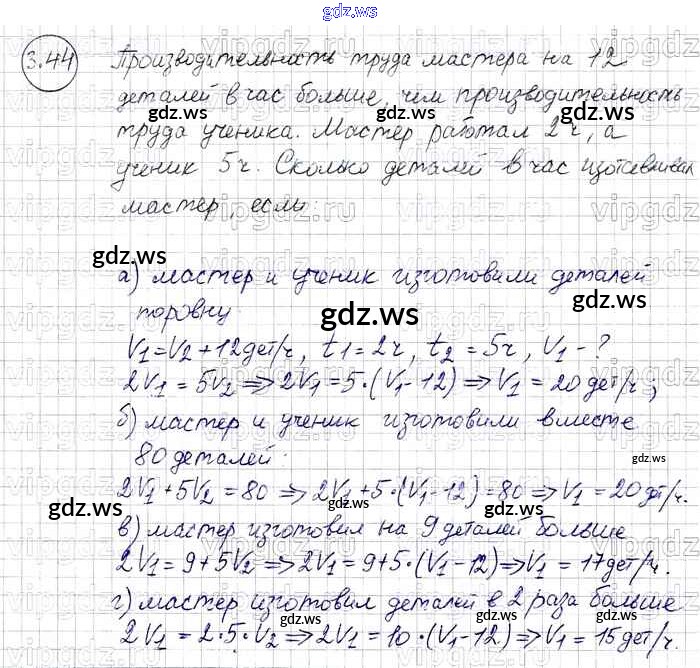 gdz.ws
3.44 Производительность труда мастера на 12
деталей в час больше, чем производительность
труда ученика. Мастер работал 2 ч, а
ученик 5 ч. Сколько деталей в час изготавливал
мастер, если:
а) мастер и ученик изготовили деталей
поровну:
V₁ = V₂ + 12 дет/ч, t₁ = 2 ч, t₂ = 5 ч, V₁ - ?
2V₁ = 5V₂ ⇒ 2V₁ = 5·(V₁ - 12) ⇒ V₁ = 20 дет/ч;
б) мастер и ученик изготовили вместе
80 деталей:
2V₁ + 5V₂ = 80 ⇒ 2V₁ + 5·(V₁ - 12) = 80 ⇒ V₁ = 20 дет/ч.
в) мастер изготовил на 9 деталей больше
2V₁ = 9 + 5V₂ ⇒ 2V₁ = 9 + 5·(V₁ - 12) ⇒ V₁ = 17 дет/ч.
г) мастер изготовил деталей в 2 раза больше
2V₁ = 2·5·V₂ ⇒ 2V₁ = 10·(V₁ - 12) ⇒ V₁ = 15 дет/ч.